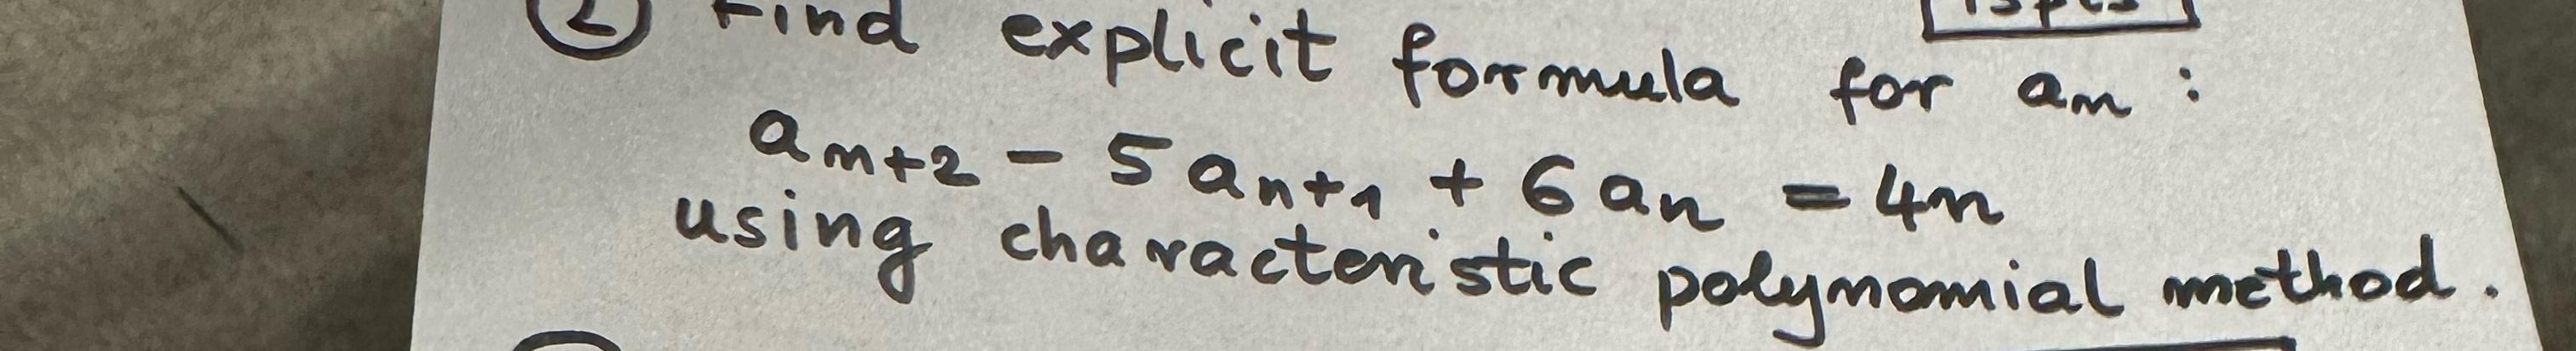 ② Find explicit formula for aₙ :
15pts
aₙ₊₂ - 5aₙ₊₁ + 6aₙ = 4n
using characteristic polynomial method.